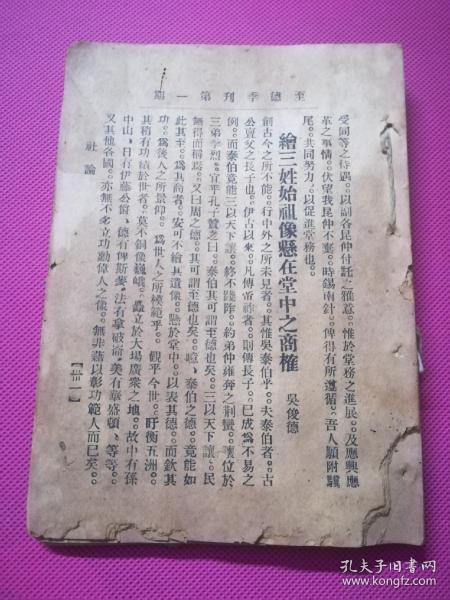 至德季刊第一期
受同等之待遇。以副各昆仲付託之雅意。惟於堂務之進展。及應興應
革之事情。伏望我昆仲不棄。時錫南針。俾得有所遵循。吾人願附驥
尾。共同努力。以促進堂務也。
繪三姓始祖像懸在堂中之商榷 吳俊德
創古今之所不能。行中外之所未見者。其惟吳泰伯乎。夫泰伯者。古
公亶父之長子也。伊古以來。凡傳帝祚者。則傳長子。已成爲不易之
例。而泰伯竟能三以天下讓。終不踐阼。約弟仲雍奔之荆蠻。讓位於
三弟季烈。宜乎孔子贊之曰。泰伯其可謂至德也矣。三以天下讓。民
無得而稱焉。又曰周之德。其可謂至德也矣。噫。泰伯之德。竟能如
此其至。爲其裔者。安可不繪其遺像。懸於堂中。以表其德。而欽其
功。爲後人之所景仰。爲世人之所模範乎。觀乎今世。盱衡五洲。
其稍有功績於世者。莫不銅像巍峨。矗立於大場廣衆之地。故中有孫
中山、日有伊藤公爵、德有俾斯麥、法有拿破崙、美有華盛頓、等等。
又其他各國。亦無不多立功勳偉人之像。無非藉以彰功範人而已矣。
社論
孔夫子旧书网
www.kongfz.com